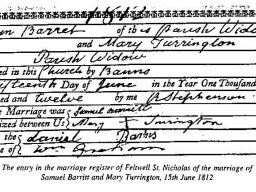 m Barret of this Parish Wido
and Mary Turrington
Parish Widow
ed in this Church by Banns
fteenth Day of June in the Year One Thousand
ed and twelve by me R Stephenson
Marriage was Samuel
ized between Us Mary X Turrington
the daniel Banks
of
The entry in the marriage register of Feltwell St. Nicholas of the marriage of
Samuel Barritt and Mary Turrington, 15th June 1812